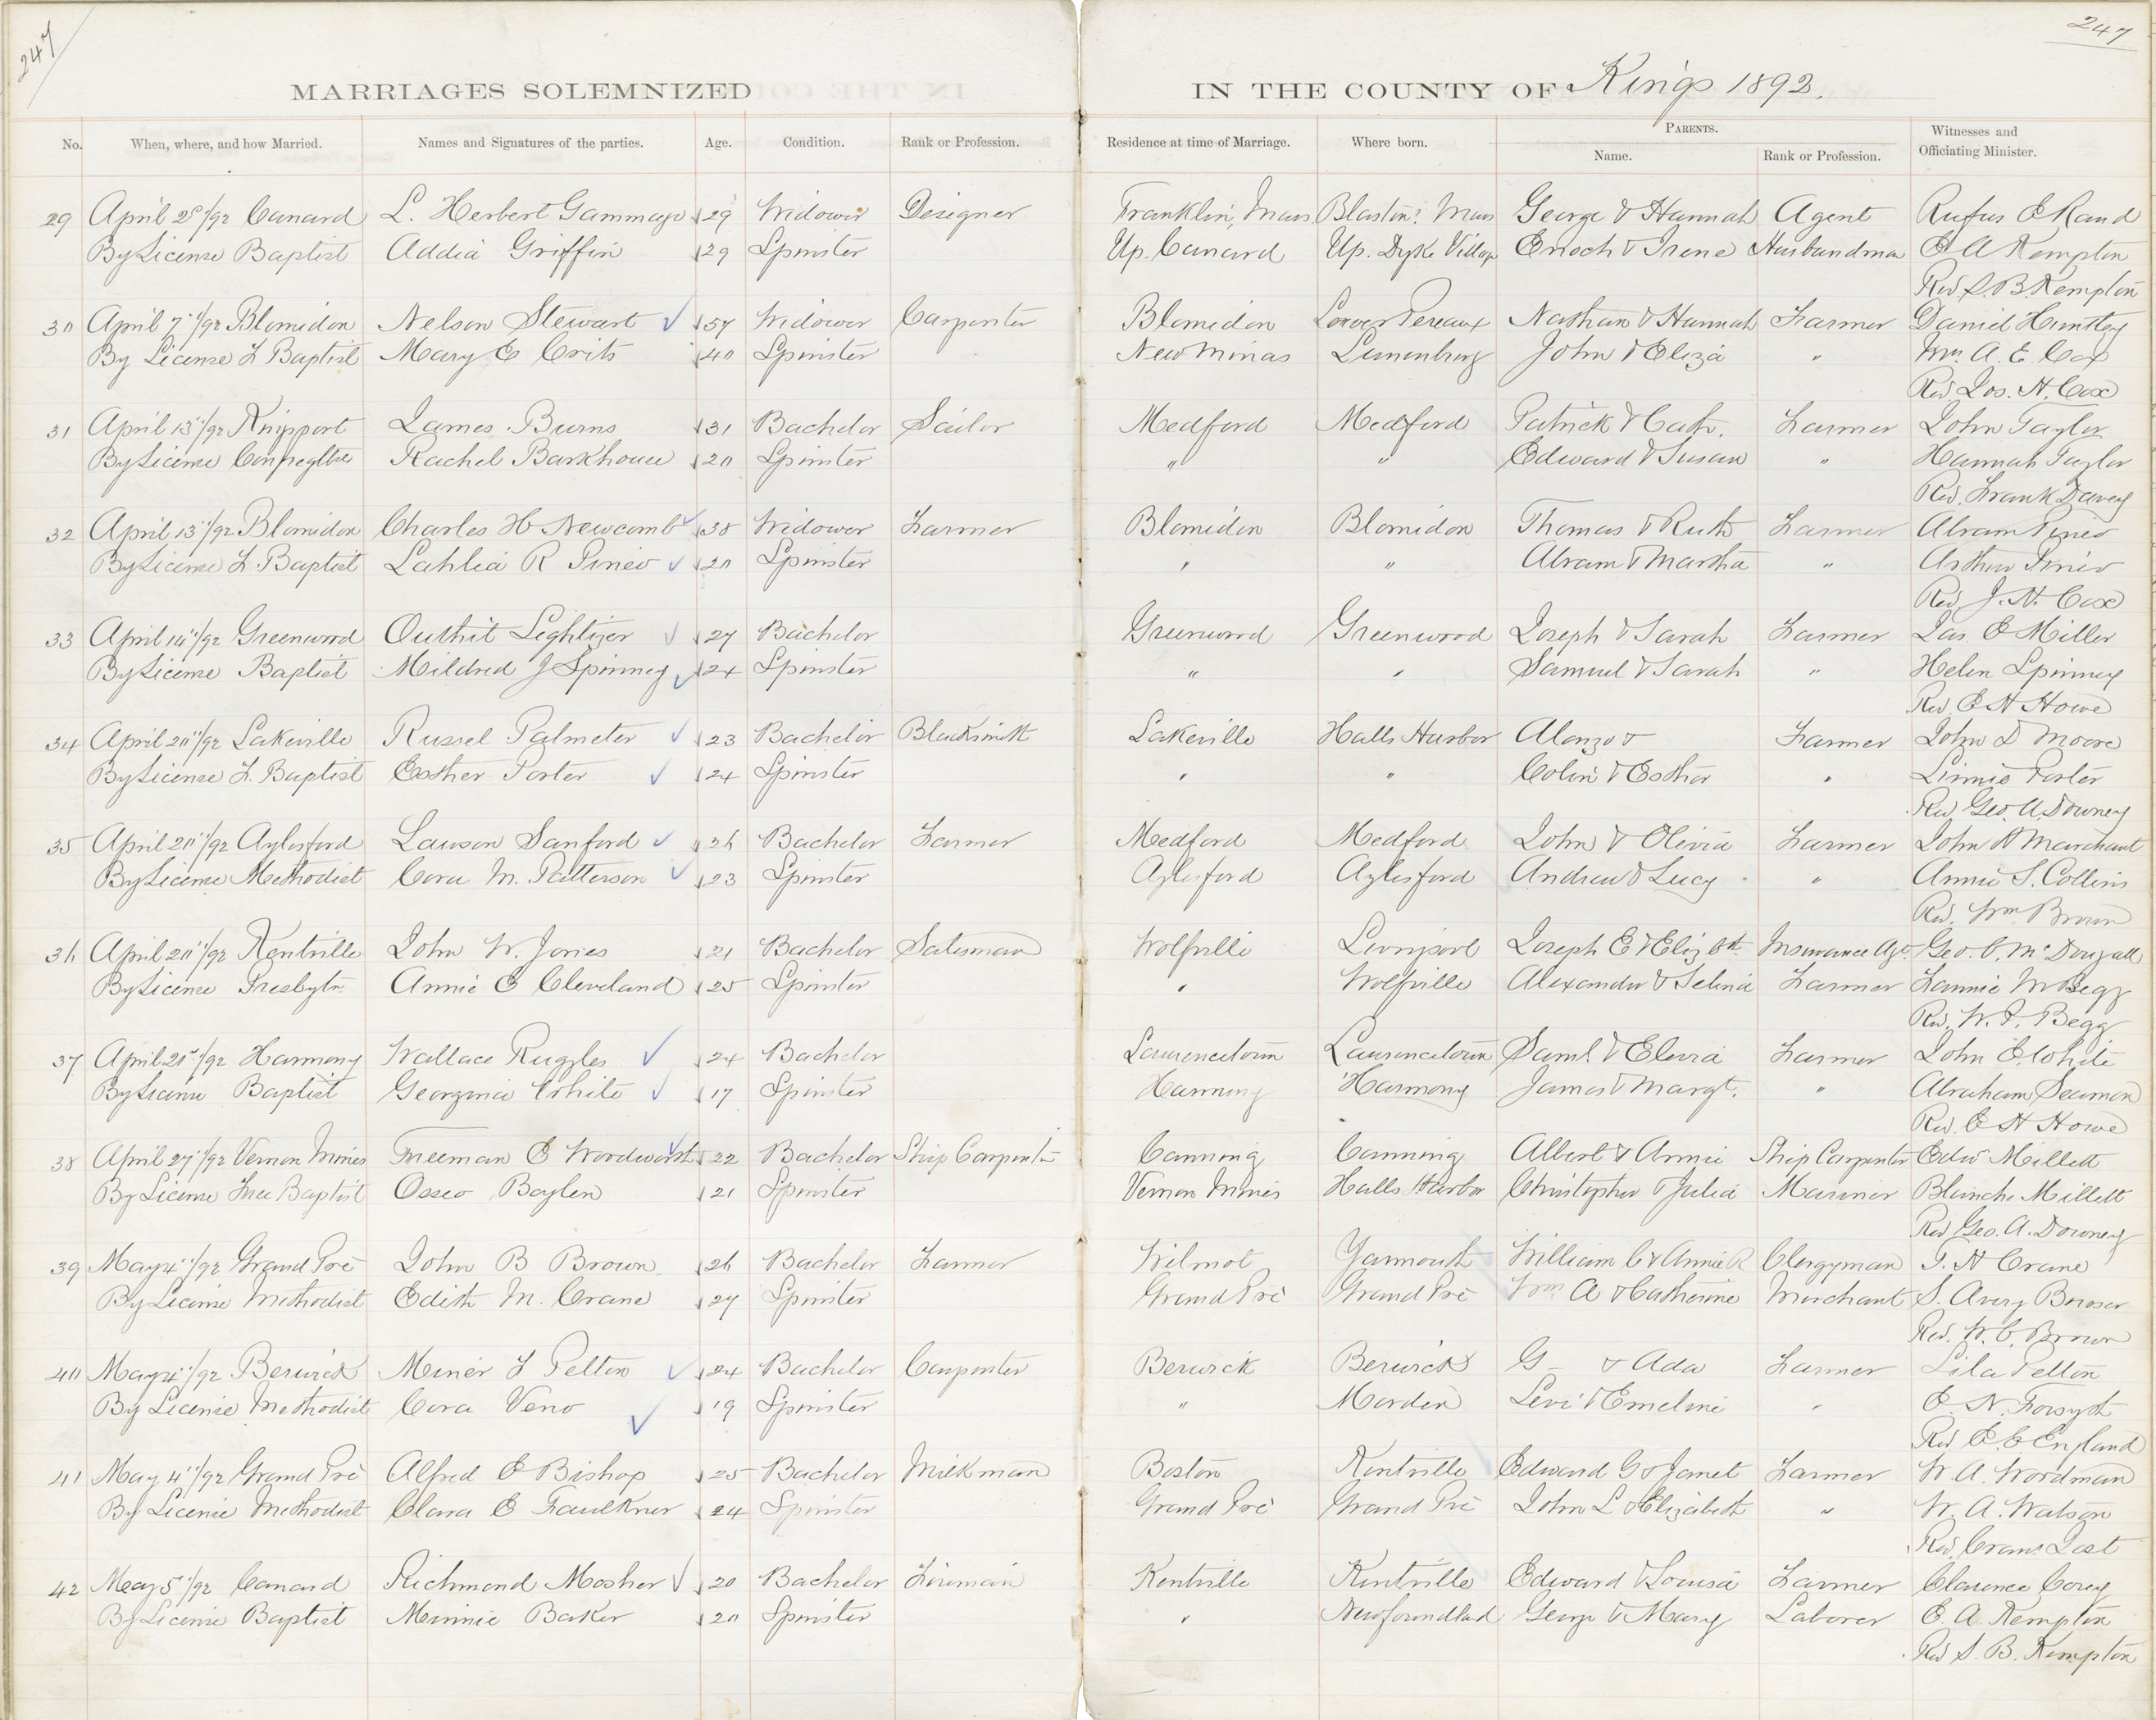 247
247
MARRIAGES SOLEMNIZED
IN THE COUNTY OF Kings 1892.
No. When, where, and how Married. Names and Signatures of the parties. Age. Condition. Rank or Profession. Residence at time of Marriage. Where born. PARENTS. Name. Rank or Profession. Witnesses and Officiating Minister.
29 April /92 Canard L. Herbert Gammage 29 Widower Designer Franklin, Mass Mass George & Hannah Agent Rufus E Rand
By License Baptist Addia Griffin 29 Spinster Up. Canard Up. Dyke Village Enoch & Irene Husbandman E A Kempton
Rev S. B. Kempton
30 April 7"/92 Blomidon Nelson Stewart 57 Widower Carpenter Blomidon Lower Pereaux Nathan & Hannah Farmer Daniel Huntley
By License F Baptist Mary E Crits 40 Spinster New Minas Lunenburg John & Eliza " Mrs. A. E. Cox
Rev Jos. H. Cox
31 April 13"/92 Kingsport James Burns 31 Bachelor Sailor Medford Medford Patrick & Cath. Farmer John Taylor
By License Rachel Barkhouse 20 Spinster " " Edward & Susan " Hannah Taylor
Rev. Frank Davey
32 April 13"/92 Blomidon Charles H Newcomb 38 Widower Farmer Blomidon Blomidon Thomas & Ruth Farmer Abram Pineo
By License F. Baptist Lahlia R Pineo 20 Spinster " " Abram & Martha " Arthur Pineo
Rev J. N. Cox
33 April 14"/92 Greenwood Outhit Lightizer 27 Bachelor Greenwood Greenwood Joseph & Sarah Farmer Jas. E Miller
By License Baptist Mildred J Spinney 24 Spinster " " Samuel & Sarah " Helen Spinney
Rev. E H Howe
34 April 20"/92 Lakeville Russel Palmeter 23 Bachelor Blacksmith Lakeville Halls Harbor Alonzo & Farmer John D Moore
By License F. Baptist Esther Porter 24 Spinster " " Colin & Esther " Porter
Rev Geo. A. Downey
35 April 20"/92 Aylesford Lawson Sanford 26 Bachelor Farmer Medford Medford John & Olivia Farmer John A Marchant
By License Methodist Cora M. Patterson 23 Spinster Aylesford Aylesford Andrew & Lucy " Annie S. Collins
Rev. Wm Brown
36 April 20"/92 Kentville John W. Jones 21 Bachelor Salesman Wolfville Liverpool Joseph E & Elizbth Insurance Agt. Geo. C. McDougall
By License Presbytn Annie E Cleveland 25 Spinster " Wolfville Alexander & Selina Farmer Fannie M Begg
Rev. W. P. Begg
37 April 21st/92 Harmony Wallace Ruggles 24 Bachelor Laurencetown Laurencetown Saml. & Farmer John E. White
By License Baptist Georgina White 17 Spinster Harmony James & Margt. " Abraham Seaman
Rev. E H Howe
38 April 27"/92 Vernon Mines Freeman E Woodworth 22 Bachelor Ship Carpenter Canning Canning Albert & Annie Ship Carpenter Edw Millett
By License Free Baptist Osseo Boylen 21 Spinster Vernon Mines Halls Harbor Christopher & Julia Mariner Blanche Millett
Rev Geo. A. Downey
39 May 4"/92 Grand Pré John B Brown 26 Bachelor Farmer Wilmot Yarmouth William C & Annie R Clergyman J. N Crane
By License Methodist Edith M. Crane 27 Spinster Grand Pré Grand Pré Wm. A & Catherine Merchant S. Avery Bowser
Rev. W. C. Brown
40 May 4"/92 Berwick Miner F Pelton 24 Bachelor Carpenter Berwick Berwick G & Ada Farmer Lila Pelton
By License Methodist Cora Veno 19 Spinster " Morden Levi & Emeline " E. N. Forsyth
Rev E. E England
41 May 4"/92 Grand Pré Alfred E Bishop 25 Bachelor Milkman Boston Kentville Edward G & Janet Farmer W. A. Wordman
By License Methodist Clara E Faulkner 24 Spinster Grand Pré Grand Pré John L & Elizabeth " W. A. Watson
Rev. Crans. Jost
42 May 5"/92 Canard Richmond Mosher 20 Bachelor Fireman Kentville Kentville Edward & Louisa Farmer Clarence Corey
By License Baptist Minnie Baker 20 Spinster " Newfoundland George & Mary Laborer E. A. Kempton
Rev S. B. Kempton